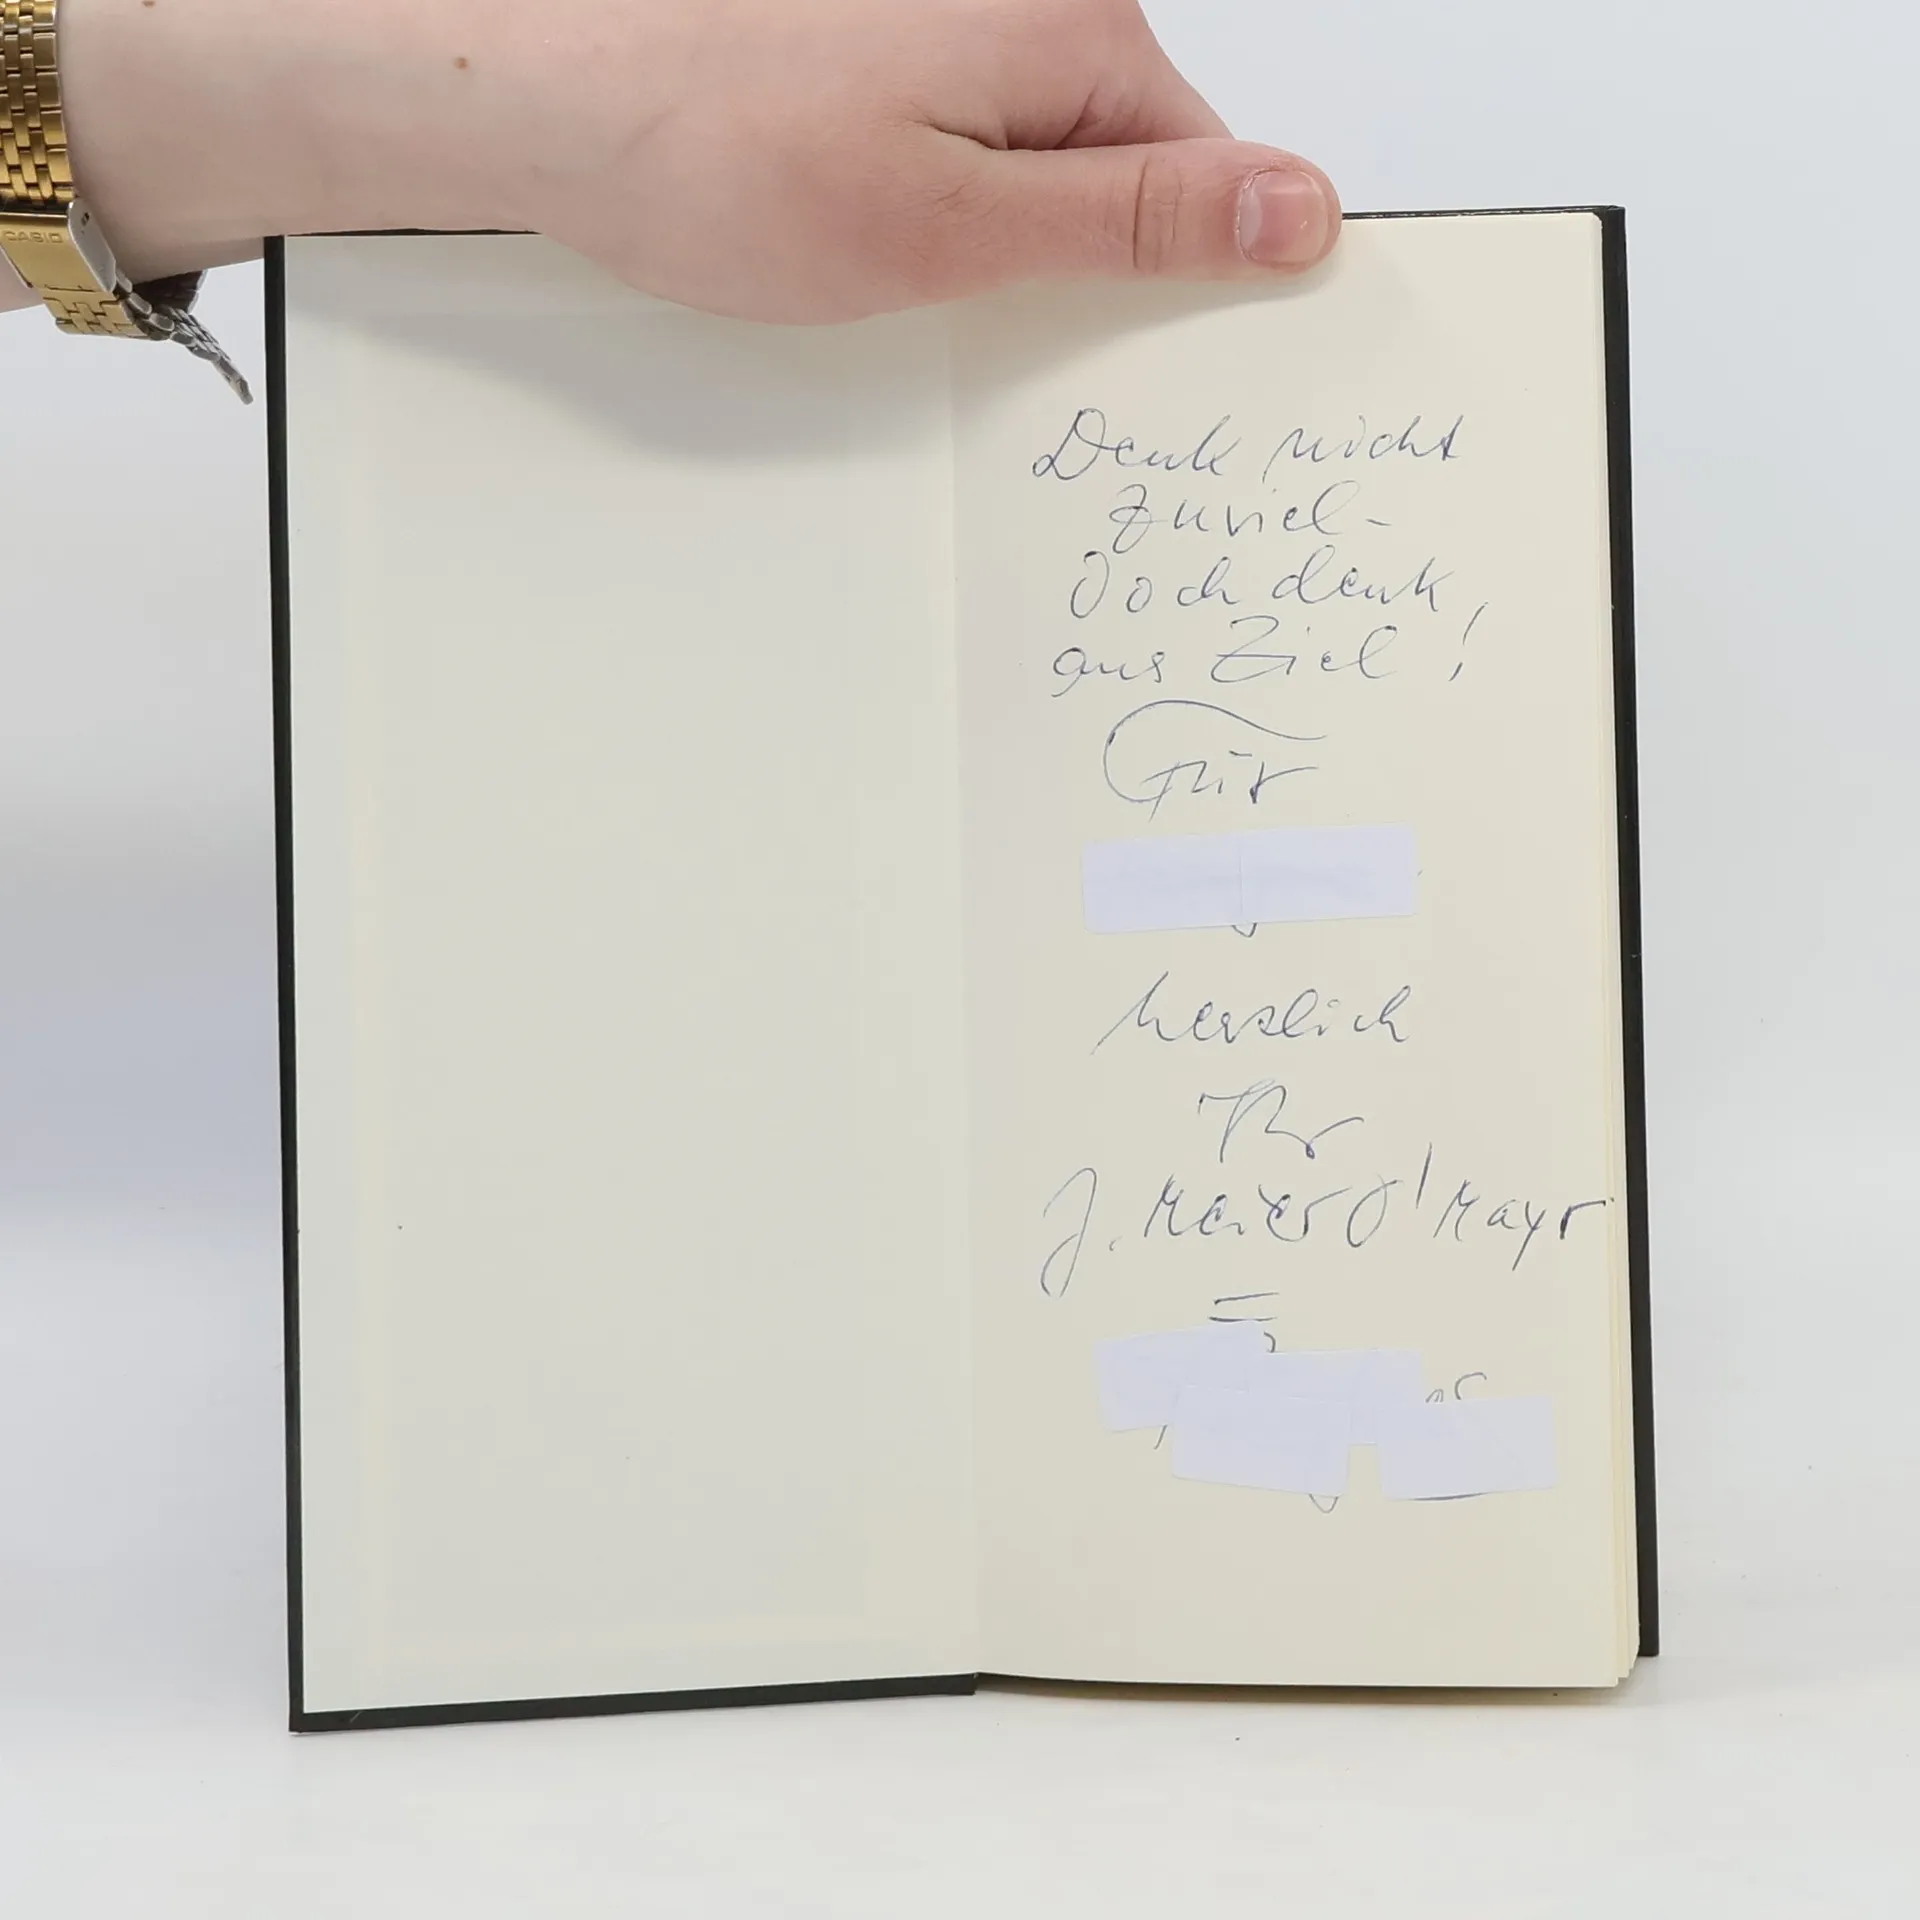 CASIO
Denk nicht
zuviel -
Doch denk,
ans Ziel!
Für
herzlich
Ihr
J. Meier O'Mayr